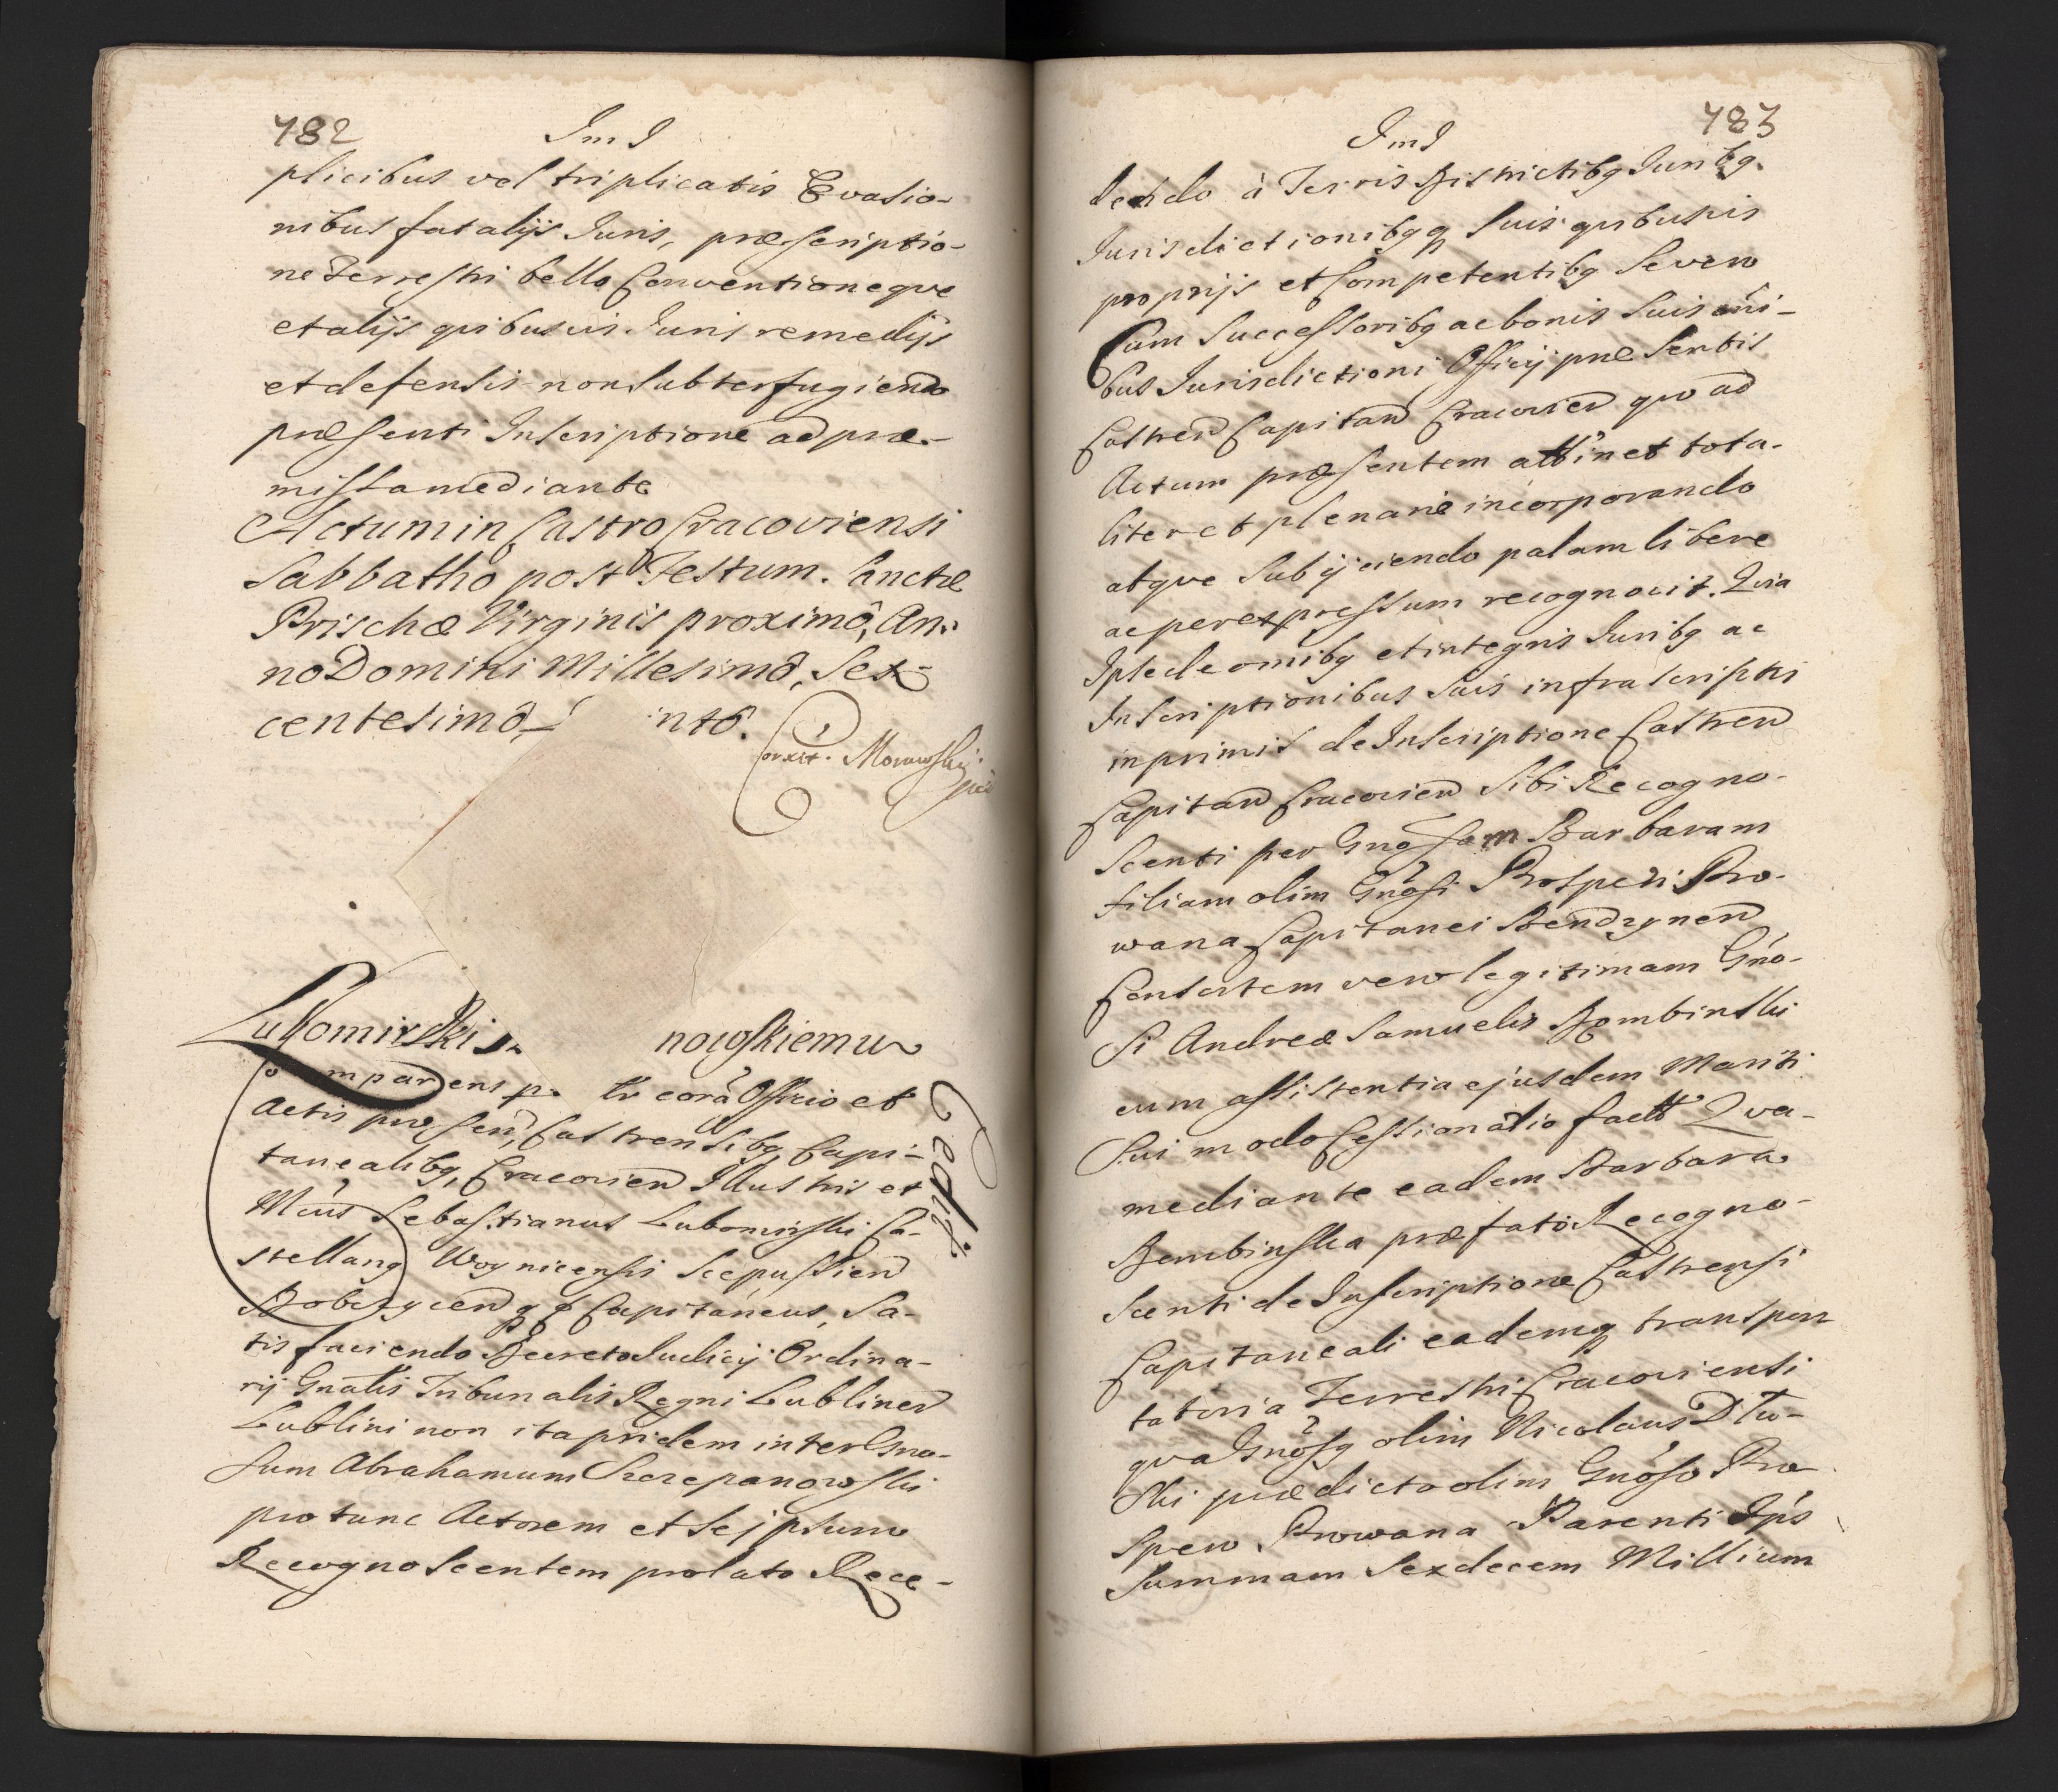 782
Im I
plicibus vel triplicatis Evasio-
nibus fatalijs Iuris, præscriptio-
ne Terrestri bello Conventioneque
et alijs quibusvis Iuris remedijs
et defensis non subterfugiendo
præsenti Inscriptione ad præ-
missa mediante
Actum in Castro Cracoviensi
Sabbatho post Festum. Sanctæ
Prischæ Virginis proximô, An-
no Domini Millesimô, Sex-
centesimô, ntô.
Corxit. Morawski
Lubomirski nowskiemu
Comparens coră Offcio et
Actis præsen, Castrensibq Capi-
tanealibq, Cracovien Illustris et
Mcus Sebastianus Lubomirski Ca-
stellanq Woynicensis Scepussien
Dobczycen qq Capitaneus, Sa-
tisfaciendo Decreto Iudicij Ordina-
rij Gnalis Tribunalis Regni Lublinen
Lublini non ita pridem inter Gno-
sum Abrahamum Szczepanowski
pro tunc Actorem et Seipsum
Recognoscentem prolato Rece-
Cedit.
783
Im I
dendo à Terris Districtibq Iuribq.
Iurisdictionibqq suis quibusvis
proprijs et Competentibq Se vero
Cum Successoribq ac bonis Suis oni-
bus Iurisdictioni Officij præsentis
Castren Capitan Cracovien quo ad
Actum præsentem attinet tota-
liter et plenarie incorporando
atque Subijciendo palam libere
ac per expressum recognovit. Quia
Ipse de omibq et integris Iuribq ac
Inscriptionibus Suis infrascriptis
inprimis de Inscriptione Castren
Capitan Cracovien Sibi Recogno-
scenti per Gnosam Barbaram
filiam olim Gnosi Prosperi Pro-
wana Capitanei Bendzynen
Consortem vero legitimam Gno-
si Andreæ Samuelis Dembinski
cum assistentia ejusdem Mariti
Sui modo Cessionatio factt Qua-
mediante eadem Barbara
Dembinska præfato Recogno-
scenti de Inscriptione Castrensi
Capitaneali eademq transpor
tatoria Terrestri Cracoviensi
qva Gnosq olim Nicolaus Dłu-
ski prædicto olim Gnoso Pro
spero Prowana Parenti Ips
Summam Sexdecem Millium